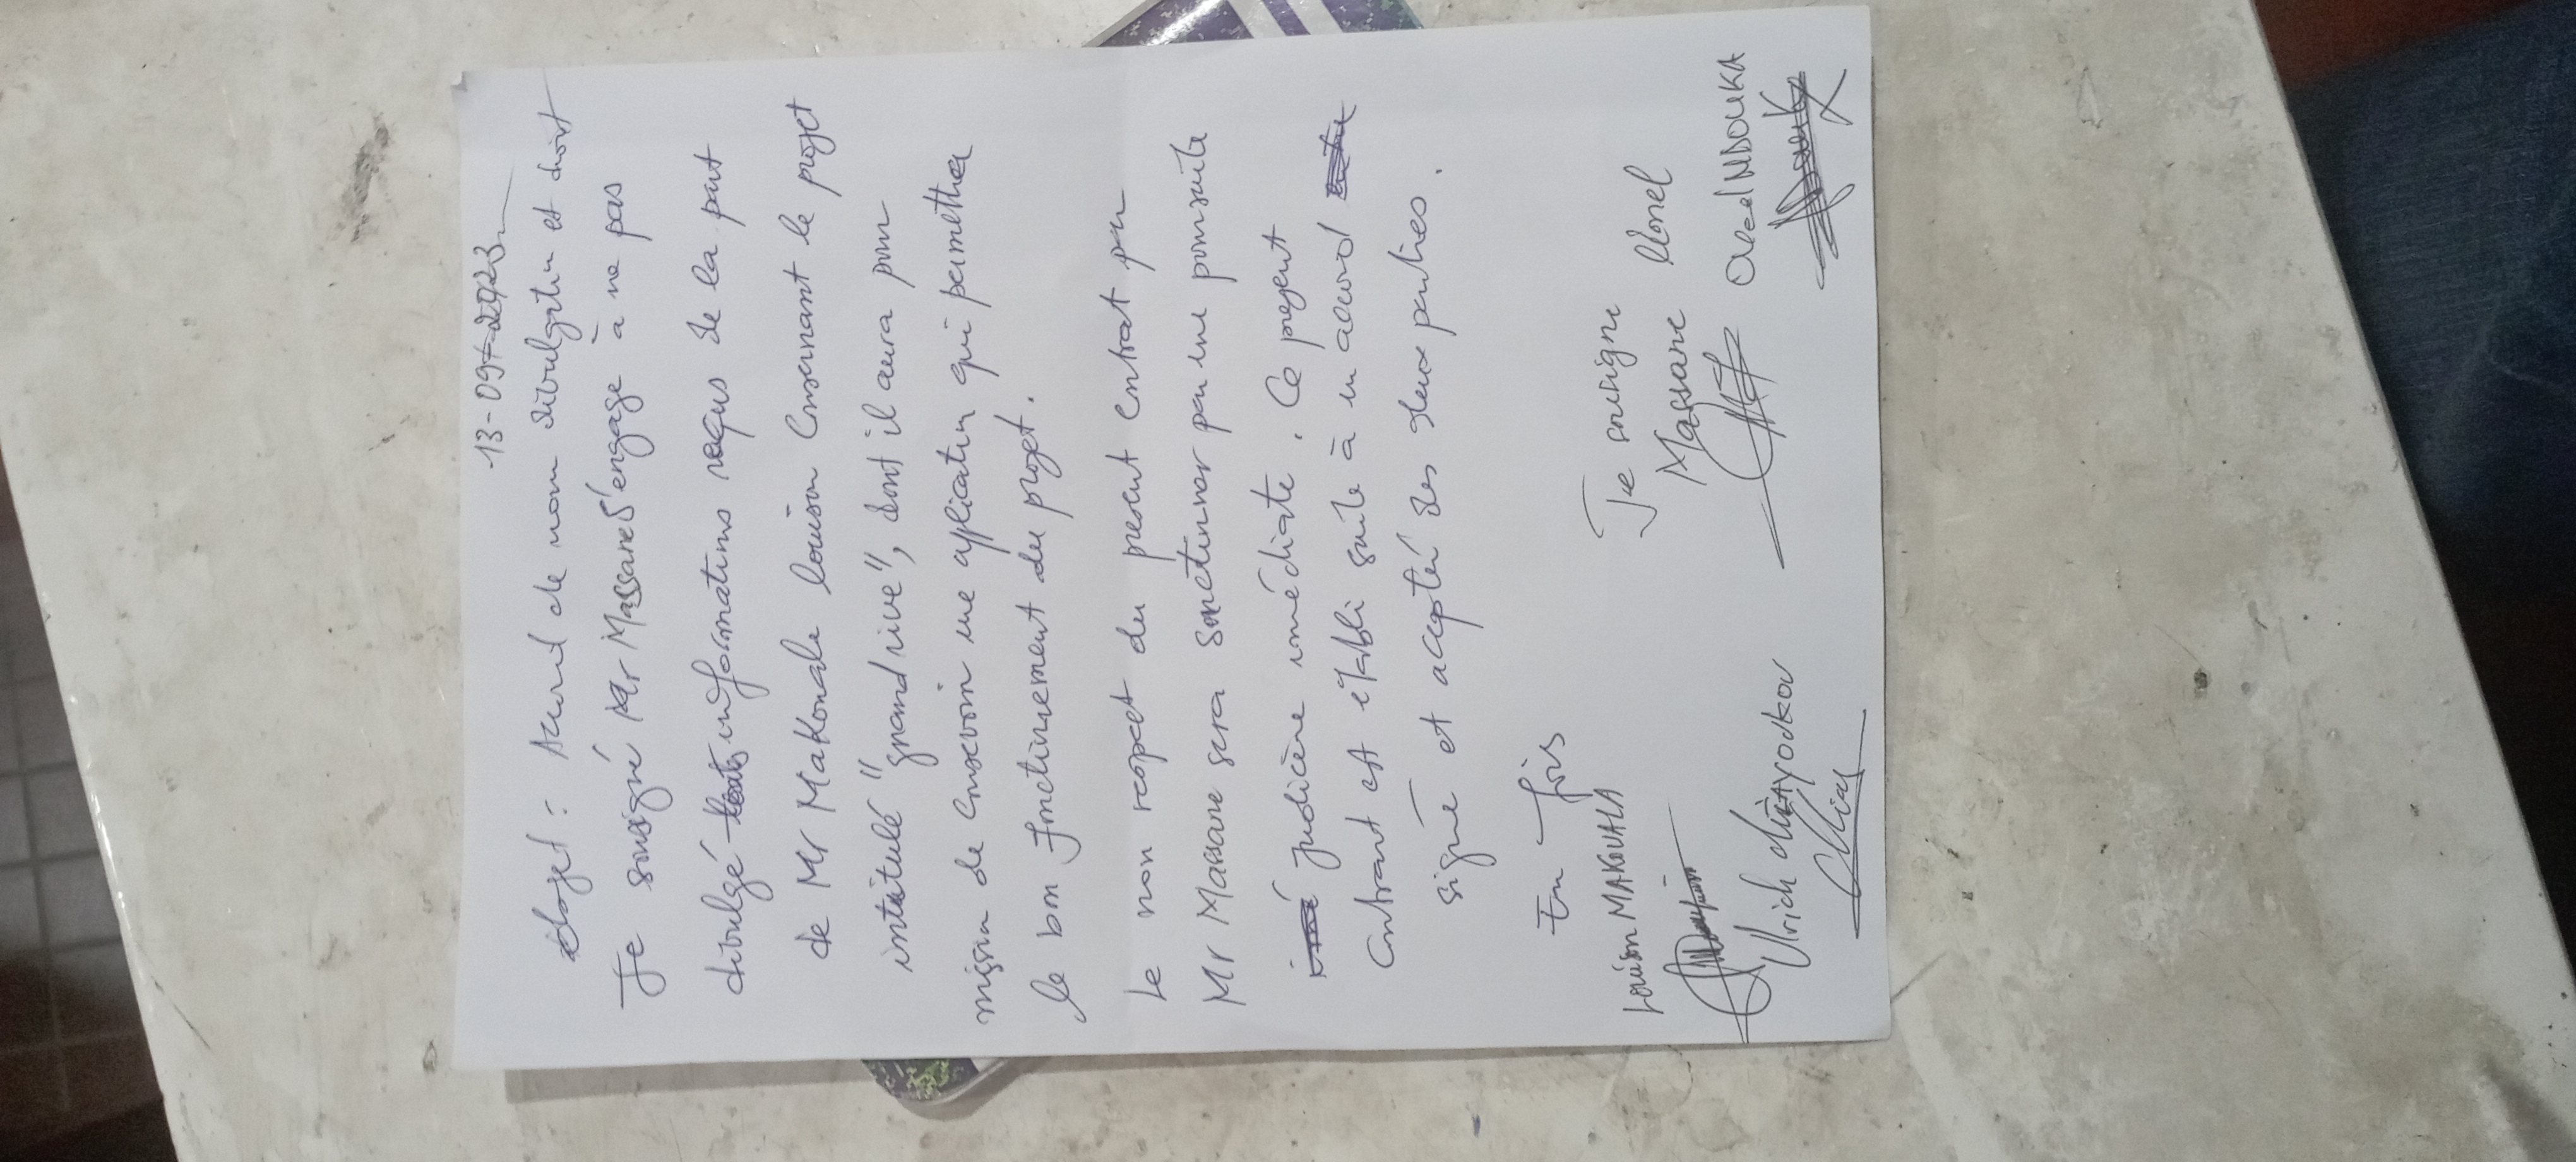 13-09-2023
Objet : Accord de non divulgation et droit
Je sousigné Mr Massane S'engage à ne pas
divulgé informations reçus de la part
de Mr Makouala louison Concernant le projet
intitulé "grand rive", dont il aura pour
mission de Concevoir une application qui permettra
le bon fonctionnement du projet.
Le non respect du present contrat par
Mr Massane sera sanctionner par une poursuite
judicière immédiate. Ce present
Contrant est établi suite à un accord
signé et accepté des deux parties.
En fois
Je sousigne
Louison MAKOUALA
Massane lionel
Ulrich
Obed NDOUKA